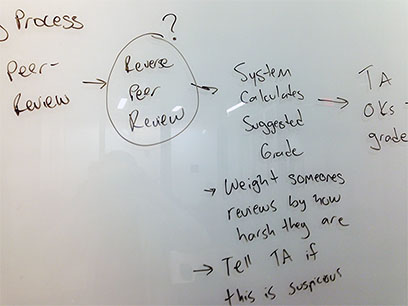 Process
?
Peer-
Review
Reverse
Peer
Review
System
Calculates
Suggested
Grade
TA
OKs
grade
→ Weight someones
reviews by how
harsh they are
→ Tell TA if
this is suspicious